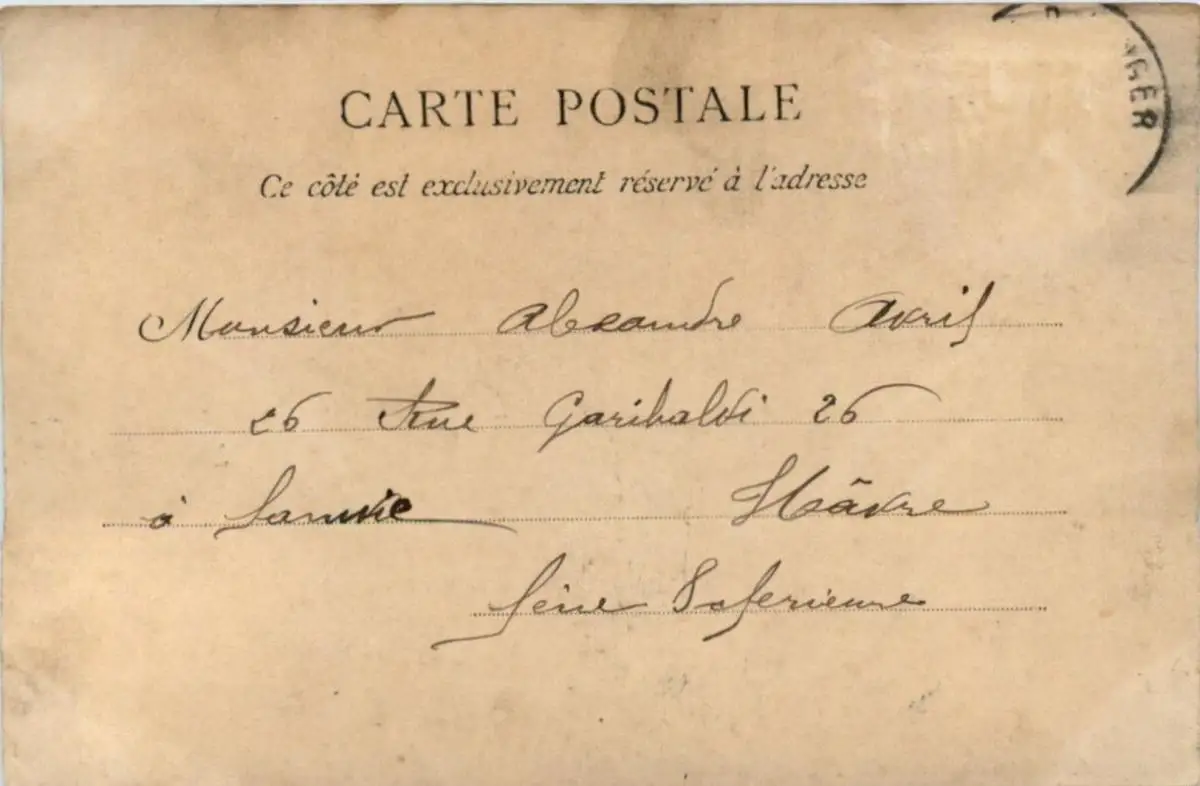 CARTE POSTALE
Ce côté est exclusivement réservé à l'adresse
GER
Monsieur Alexandre Avril
26 Rue Garibaldi 26
à Sanvic Hâvre
Seine Inferieure